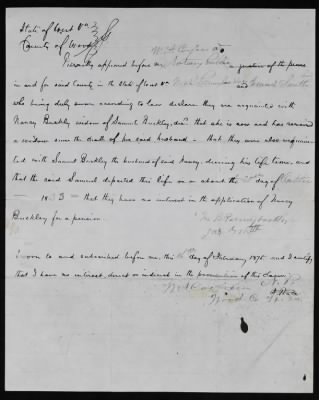 State of West Va
County of Wood
Personally appeared before me Notary Public a justice of the peace
in and for said County in the State of West Va and
who being duly sworn according to law declare they are acquainted with
Nancy Buckley widow of Samuel Buckley, decd. that she is now and has remained
a widow since the death of her said husband - that they were also acquain-
ted with Samuel Buckley the husband of said Nancy, during his life time, and
that the said Samuel departed this life on or about the day of
1833 - that they have no interest in the application of Nancy
Buckley for a pension.
Sworn to and subscribed before me, this day of February 1878 and I certify
that I have no interest, direct or indirect in the prosecution of this claim
N. P.
Wood Co